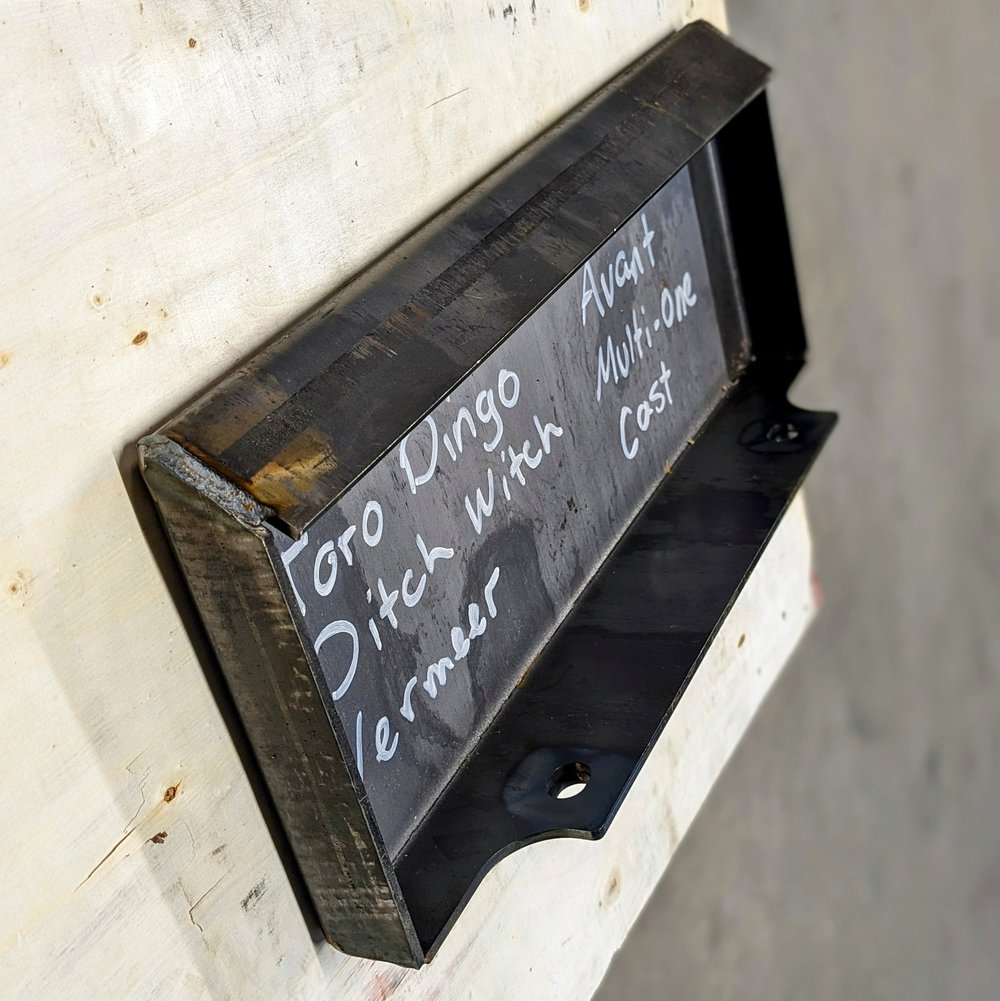 Toro Dingo
Ditch Witch
Vermeer
Avant
Multi-One
Cast